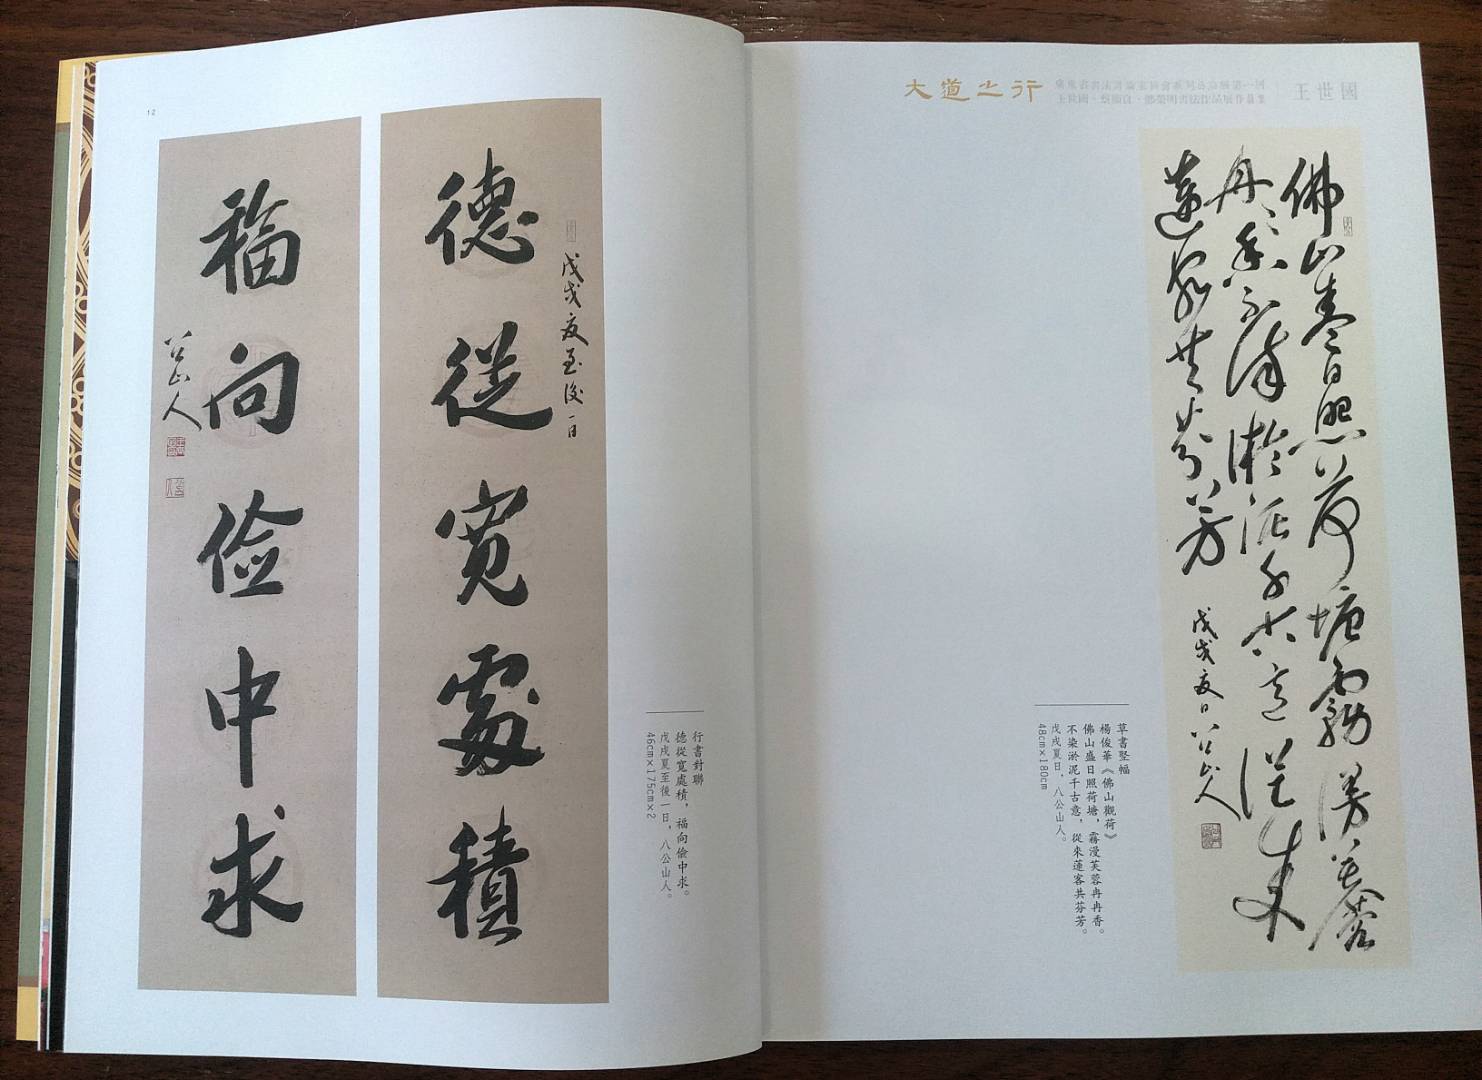 12
德從寬處積
戊戌夏至後一日
福向儉中求
八公山人
行書對聯
德從寬處積，福向儉中求。
戊戌夏至後一日，八公山人。
46cm×175cm×2
大道之行
王世國
佛山盛日照荷塘霧漫芙蓉
冉冉香不染淤泥千古意從來
蓮客共芬芳
戊戌夏日八公山人
草書堅幅
楊俊華《佛山觀荷》
佛山盛日照荷塘，霧漫芙蓉冉冉香。
不染淤泥千古意，從來蓮客共芬芳。
戊戌夏日，八公山人。
48cm×180cm